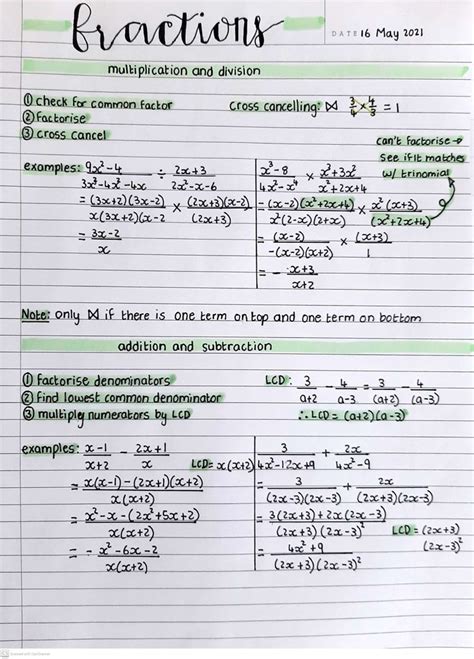 fractions
DATE 16 May 2021
multiplication and division
① check for common factor
② factorise
③ cross cancel
cross cancelling: ⋈ 3/4 × 4/3 = 1
can't factorise →
see if it matches
w/ trinomial
examples: (9x² - 4)/(3x³ - 4x² - 4x) ÷ (2x + 3)/(2x² - x - 6)
= (3x+2)(3x-2)/x(3x+2)(x-2 × (2x+3)(x-2)/(2x+3)
= (3x - 2)/x
(x³ - 8)/(4x² - x⁴) × (x³ + 3x²)/(x² + 2x + 4)
= (x-2)(x²+2x+4)/x²(2-x)(2+x) × x²(x+3)/(x²+2x+4)
= (x-2)/-(x-2)(x+2) × (x+3)/1
= - (x+3)/(x+2)
Note: only ⋈ if there is one term on top and one term on bottom
addition and subtraction
① factorise denominators
② find lowest common denominator
③ multiply numerators by LCD
LCD: 3/(a+2) - 4/(a-3) = 3/(a+2) - 4/(a-3)
∴ LCD = (a+2)(a-3)
examples: (x-1)/(x+2) - (2x+1)/x LCD = x(x+2)
= x(x-1) - (2x+1)(x+2)/x(x+2)
= x² - x - (2x² + 5x + 2)/x(x+2)
= - x² - 6x - 2/x(x+2)
3/(4x² - 12x + 9) + 2x/(4x² - 9)
= 3/(2x-3)(2x-3) + 2x/(2x+3)(2x-3)
= 3(2x+3) + 2x(2x-3)/(2x+3)(2x-3)² LCD = (2x+3)(2x-3)²
= 4x² + 9/(2x+3)(2x-3)²